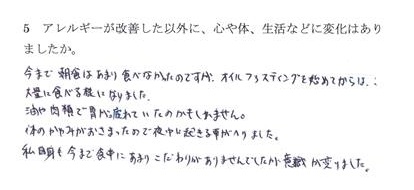 5 アレルギーが改善した以外に、心や体、生活などに変化はあり
ましたか。
今まで朝食はあまり食べなかったのですが、オイルファスティングを始めてからは、
大量に食べる様になりました。
油や肉類で胃が疲れていたのかもしれません。
体のかゆみがおさまったので夜中に起きる事がへりました。
私自身も今まで食事にあまりこだわりがありませんでしたが意識が変りました。